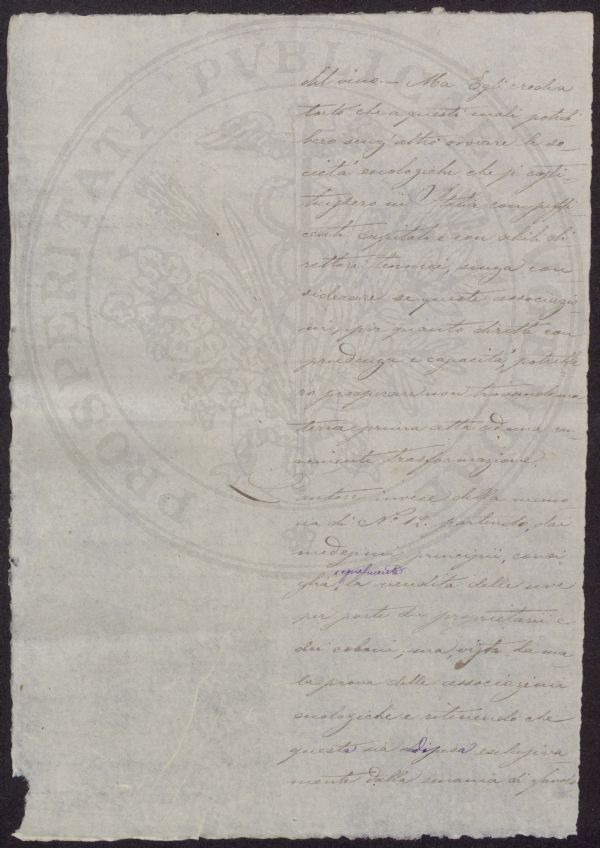 del vino. - Ma Egli crede a
torto che a questi mali potreb
bero senz'altro ovviare le so
cietà enologiche che si costi-
tuissero in Italia con suffi
cienti capitali e con abili di
rettori tecnici, senza con
siderare se queste associazio
ni, per quanto dirette con
prudenza e capacità, potrebbe
ro prosperare non trovando ma
teria prima atta ad una con
veniente trasformazione.
L'autore invece della memo
ria di No 12. partendo dai
medesimi principii, consi
glia la vendita delle uve
per parte dei proprietari e
dei coloni; ma vista la ma
la prova delle associazioni
enologiche e ritenendo che
questa sia dipesa esclusiva
mente dalla smania di
PROSPERITATI PUBLICAE